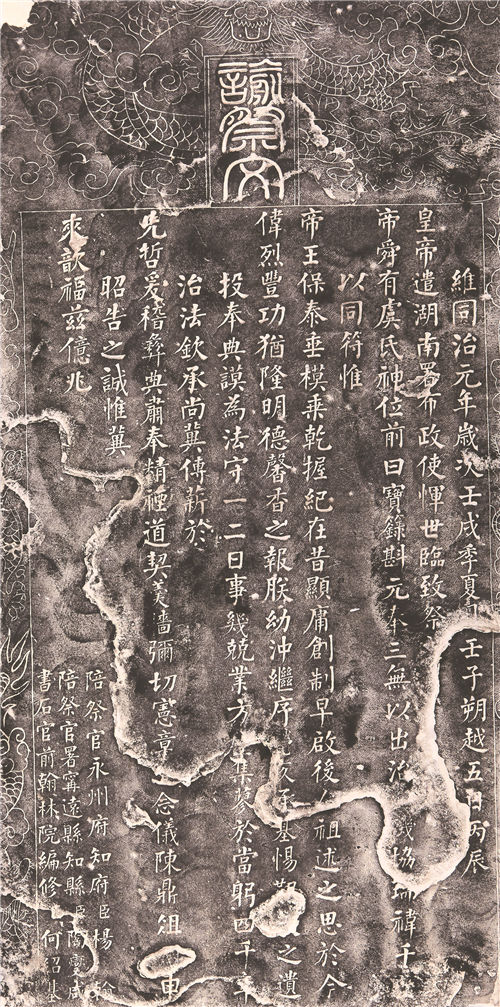 諭祭文
維同治元年歲次壬戌季夏壬子朔越五日丙辰
皇帝遣湖南署布政使惲世臨致祭
帝舜有虞氏神位前曰寶籙斟元奉三無以出治協瑞千
以同符惟
帝王保泰垂模乘乾握紀在昔顯庸創制早啟後人祖述之思於今
偉烈豐功猶隆明德馨香之報朕幼沖繼序基惕之遺
投奉典謨為法守一二日事幾兢業方集蓼於當躬四千年
治法欽承尚冀傳薪於
先哲爰稽彝典肅奉精禋道契羹牆彌切憲章念儀陳鼎俎申
昭告之誠惟冀
來歆福茲億兆
陪祭官永州府知府臣楊翰
陪祭官署寧遠縣知縣臣陶燮咸
書石官前翰林院編修何紹基